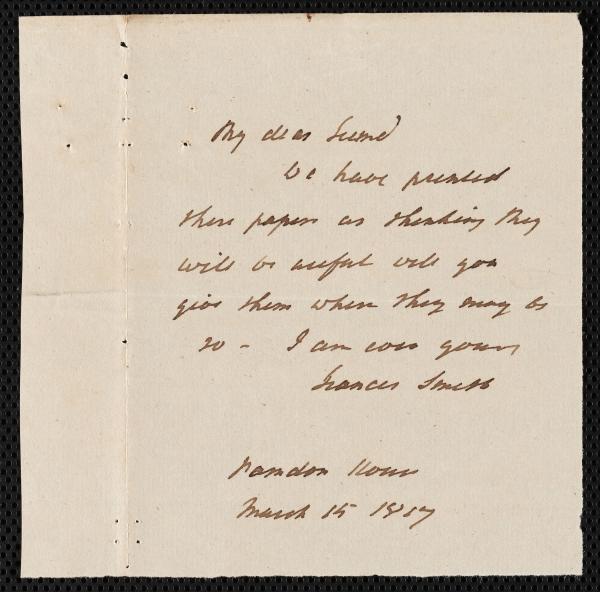 My dear friend
We have printed
these papers as thinking they
will be useful will you
give them where they may be
so - I am ever yours
Frances Smith
March 15 1817